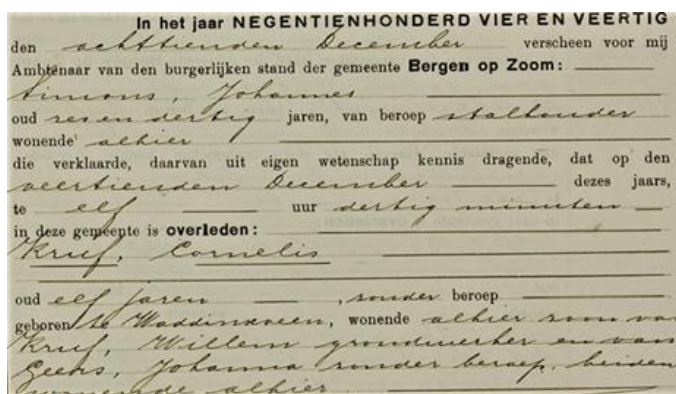 In het jaar NEGENTIENHONDERD VIER EN VEERTIG
den achttienden December verscheen voor mij
Ambtenaar van den burgerlijken stand der gemeente Bergen op Zoom:
Simons, Johannes
oud zes en dertig jaren, van beroep stalhouder
wonende alhier
die verklaarde, daarvan uit eigen wetenschap kennis dragende, dat op den
veertienden December dezes jaars,
te elf uur dertig minuten
in deze gemeente is overleden:
Kruf, Cornelis
oud elf jaren , zonder beroep
geboren te Waddinxveen, wonende alhier zoon van
Kruf, Willem grondwerker en van
Geens, Johanna zonder beroep, beiden
wonende alhier